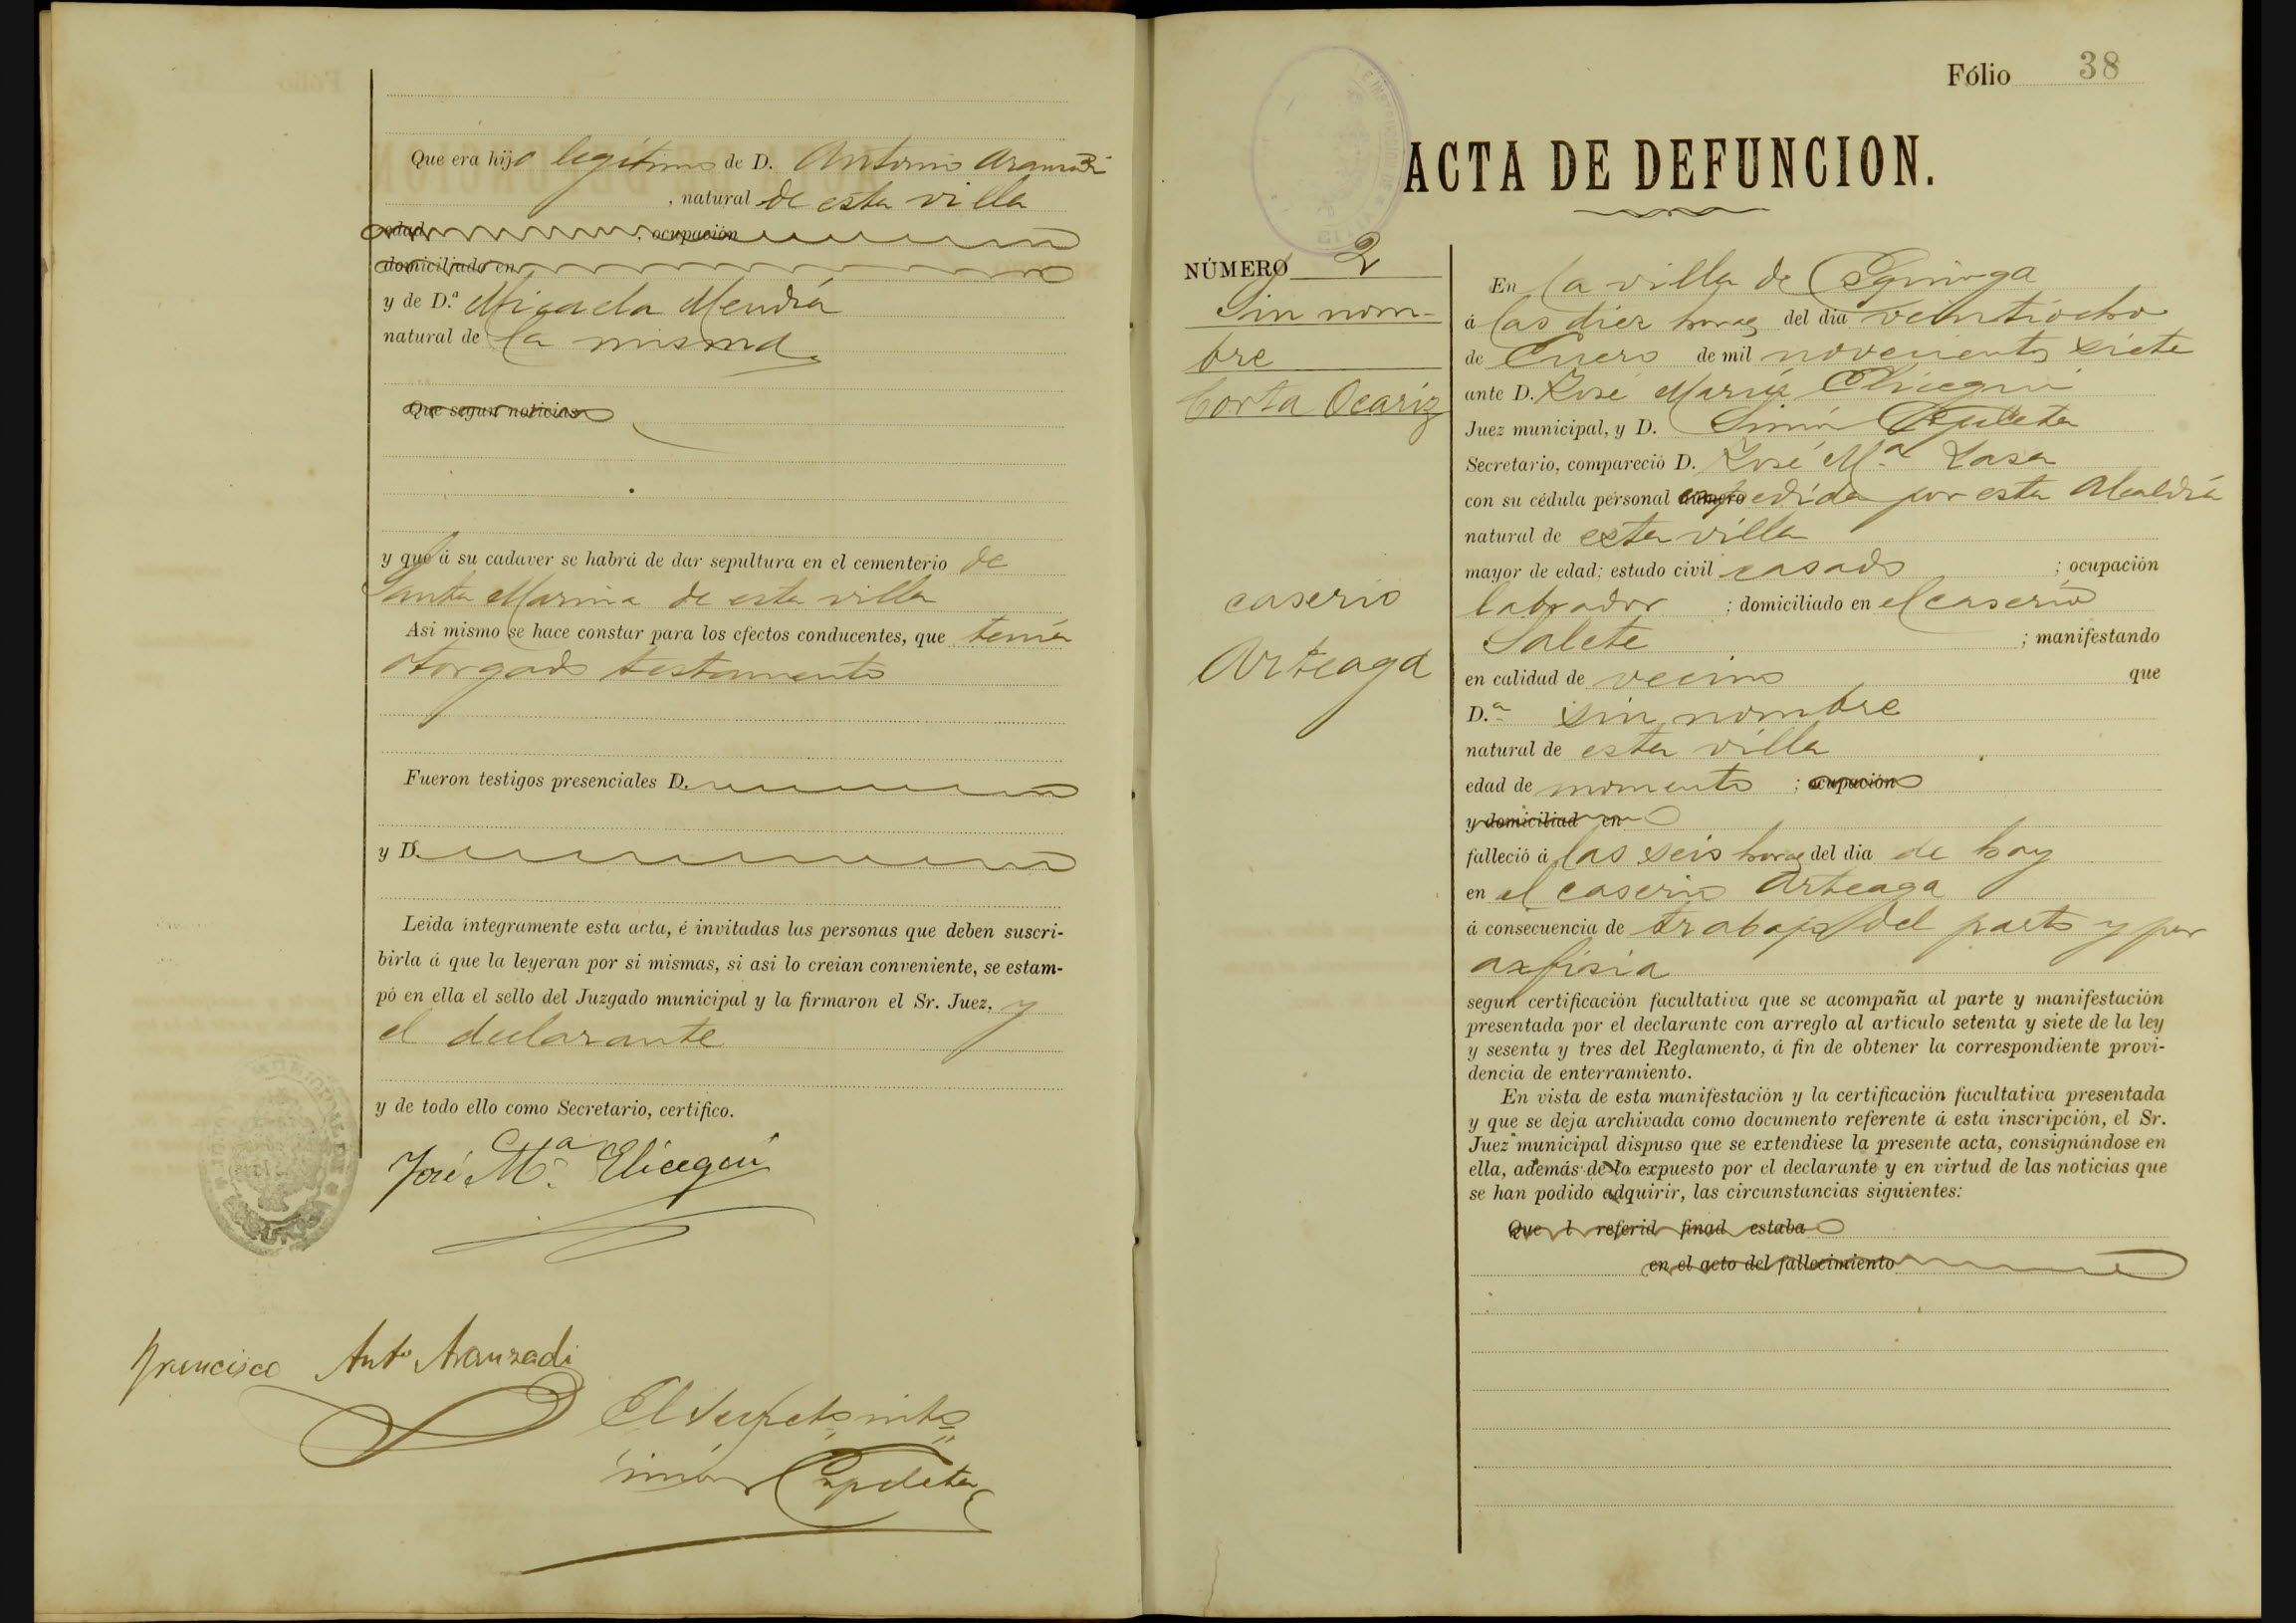 Que era hijo legítimo de D. Antonio Aranzadi
, natural de esta villa
edad , ocupación
domiciliado en
y de D.ª Micaela Mendía
natural de la misma
Que segun noticias
y que á su cadaver se habrá de dar sepultura en el cementerio de
Santa Marina de esta villa
Asi mismo se hace constar para los efectos conducentes, que tenía
otorgado testamento
Fueron testigos presenciales D.
y D.
Leida integramente esta acta, é invitadas las personas que deben suscri-
birla á que la leyeran por si mismas, si asi lo creian conveniente, se estam-
pó en ella el sello del Juzgado municipal y la firmaron el Sr. Juez, y
el declarante
y de todo ello como Secretario, certifico.
José M.ª Elicegui
Francisco Ant.º Aranzadi
El
Fólio 38
ACTA DE DEFUNCION.
NÚMERO 2
Sin nom-
bre
Corta Ocariz
caserio
Arteaga
En la villa de
á las diez horas del dia veintiocho
de Enero de mil novecientos siete
ante D. José María Elicegui
Juez municipal, y D. Simón
Secretario, compareció D. José M.ª Lasa
con su cédula personal número expedida por esta Alcaldía
natural de esta villa
mayor de edad; estado civil casado ; ocupación
labrador ; domiciliado en el caserio
Salete ; manifestando
en calidad de vecino que
D.ª sin nombre
natural de esta villa
edad de momento ; ocupación
y domiciliad en
falleció á las seis horas del dia de hoy
en el caserio Arteaga
á consecuencia de trabajo del parto y por
axfisia
segun certificación facultativa que se acompaña al parte y manifestación
presentada por el declarante con arreglo al articulo setenta y siete de la ley
y sesenta y tres del Reglamento, á fin de obtener la correspondiente provi-
dencia de enterramiento.
En vista de esta manifestación y la certificación facultativa presentada
y que se deja archivada como documento referente á esta inscripción, el Sr.
Juez municipal dispuso que se extendiese la presente acta, consignándose en
ella, además de lo expuesto por el declarante y en virtud de las noticias que
se han podido adquirir, las circunstancias siguientes:
Que l referid finad estaba
en el acto del fallecimiento